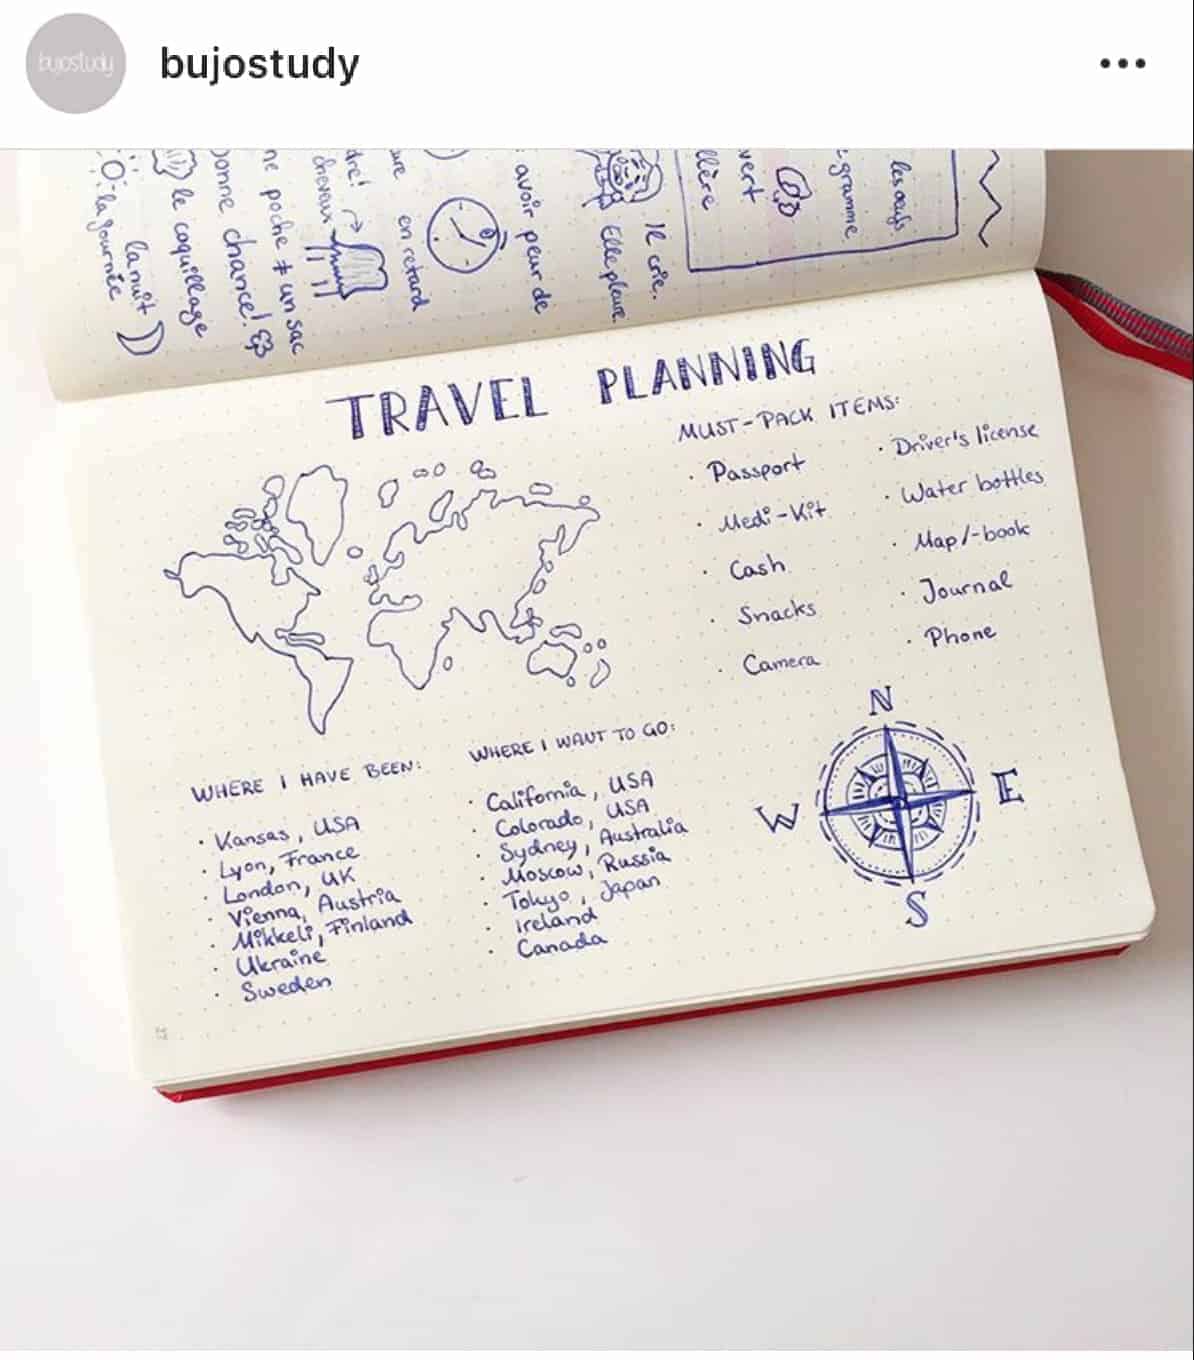 bujostudy
bujostudy
les œufs
gramme
vert
Il crie.
Elle pleure.
avoir peur de
en retard
cheveux
poche ≠ un sac
chance!
le coquillage
la nuit
la journée
TRAVEL PLANNING
MUST-PACK ITEMS:
· Passport
· Medi-Kit
· Cash
· Snacks
· Camera
· Driver's license
· Water bottles
· Map/-book
· Journal
· Phone
WHERE I HAVE BEEN:
· Kansas, USA
· Lyon, France
· London, UK
· Vienna, Austria
· Mikkeli, Finland
· Ukraine
· Sweden
WHERE I WANT TO GO:
· California, USA
· Colorado, USA
· Sydney, Australia
· Moscow, Russia
· Tokyo, Japan
· Ireland
· Canada
N
W
E
S